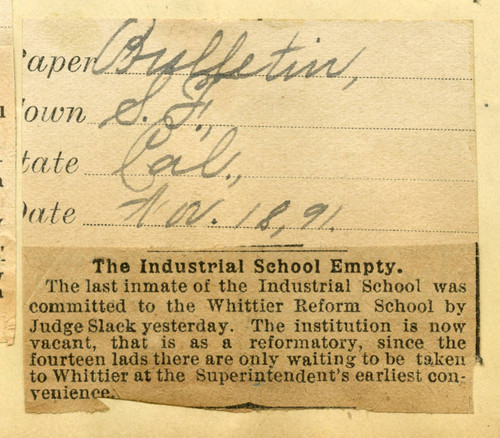 Paper Bulletin,
Town S.F.,
State Cal.,
Date Nov. 18, 91.
The Industrial School Empty.
The last inmate of the Industrial School was
committed to the Whittier Reform School by
Judge Slack yesterday. The institution is now
vacant, that is as a reformatory, since the
fourteen lads there are only waiting to be taken
to Whittier at the Superintendent's earliest con-
venience.